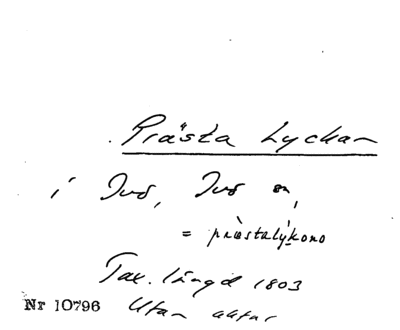 Prästa Lyckan
i Ivö, Ivö sn,
= präistalýkono
Tax. längd 1803
Nr 10796 Utan